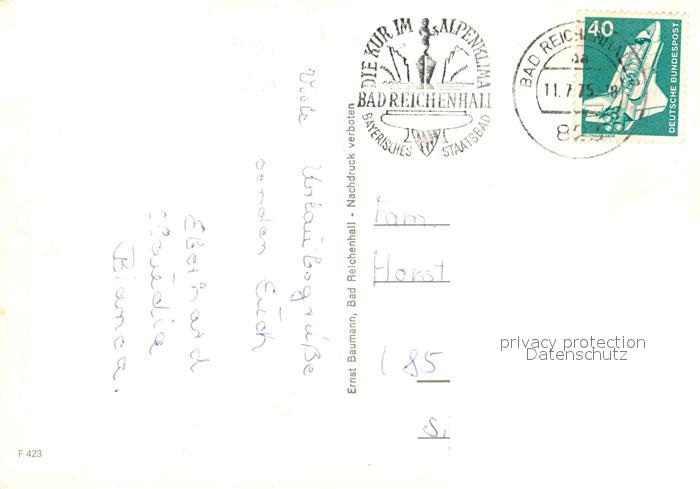 DIE KUR IM ALPENKLIMA
BAD REICHENHALL
BAYERISCHES STAATSBAD
BAD REICHENHALL
aa
11.7.75 -8
40
DEUTSCHE BUNDESPOST
Viele Urlaubsgrüße
senden Euch
Eberhard
Claudia
Bianca.
Ernst Baumann, Bad Reichenhall - Nachdruck verboten
Fam.
Horst
85
privacy protection
Datenschutz
F 423